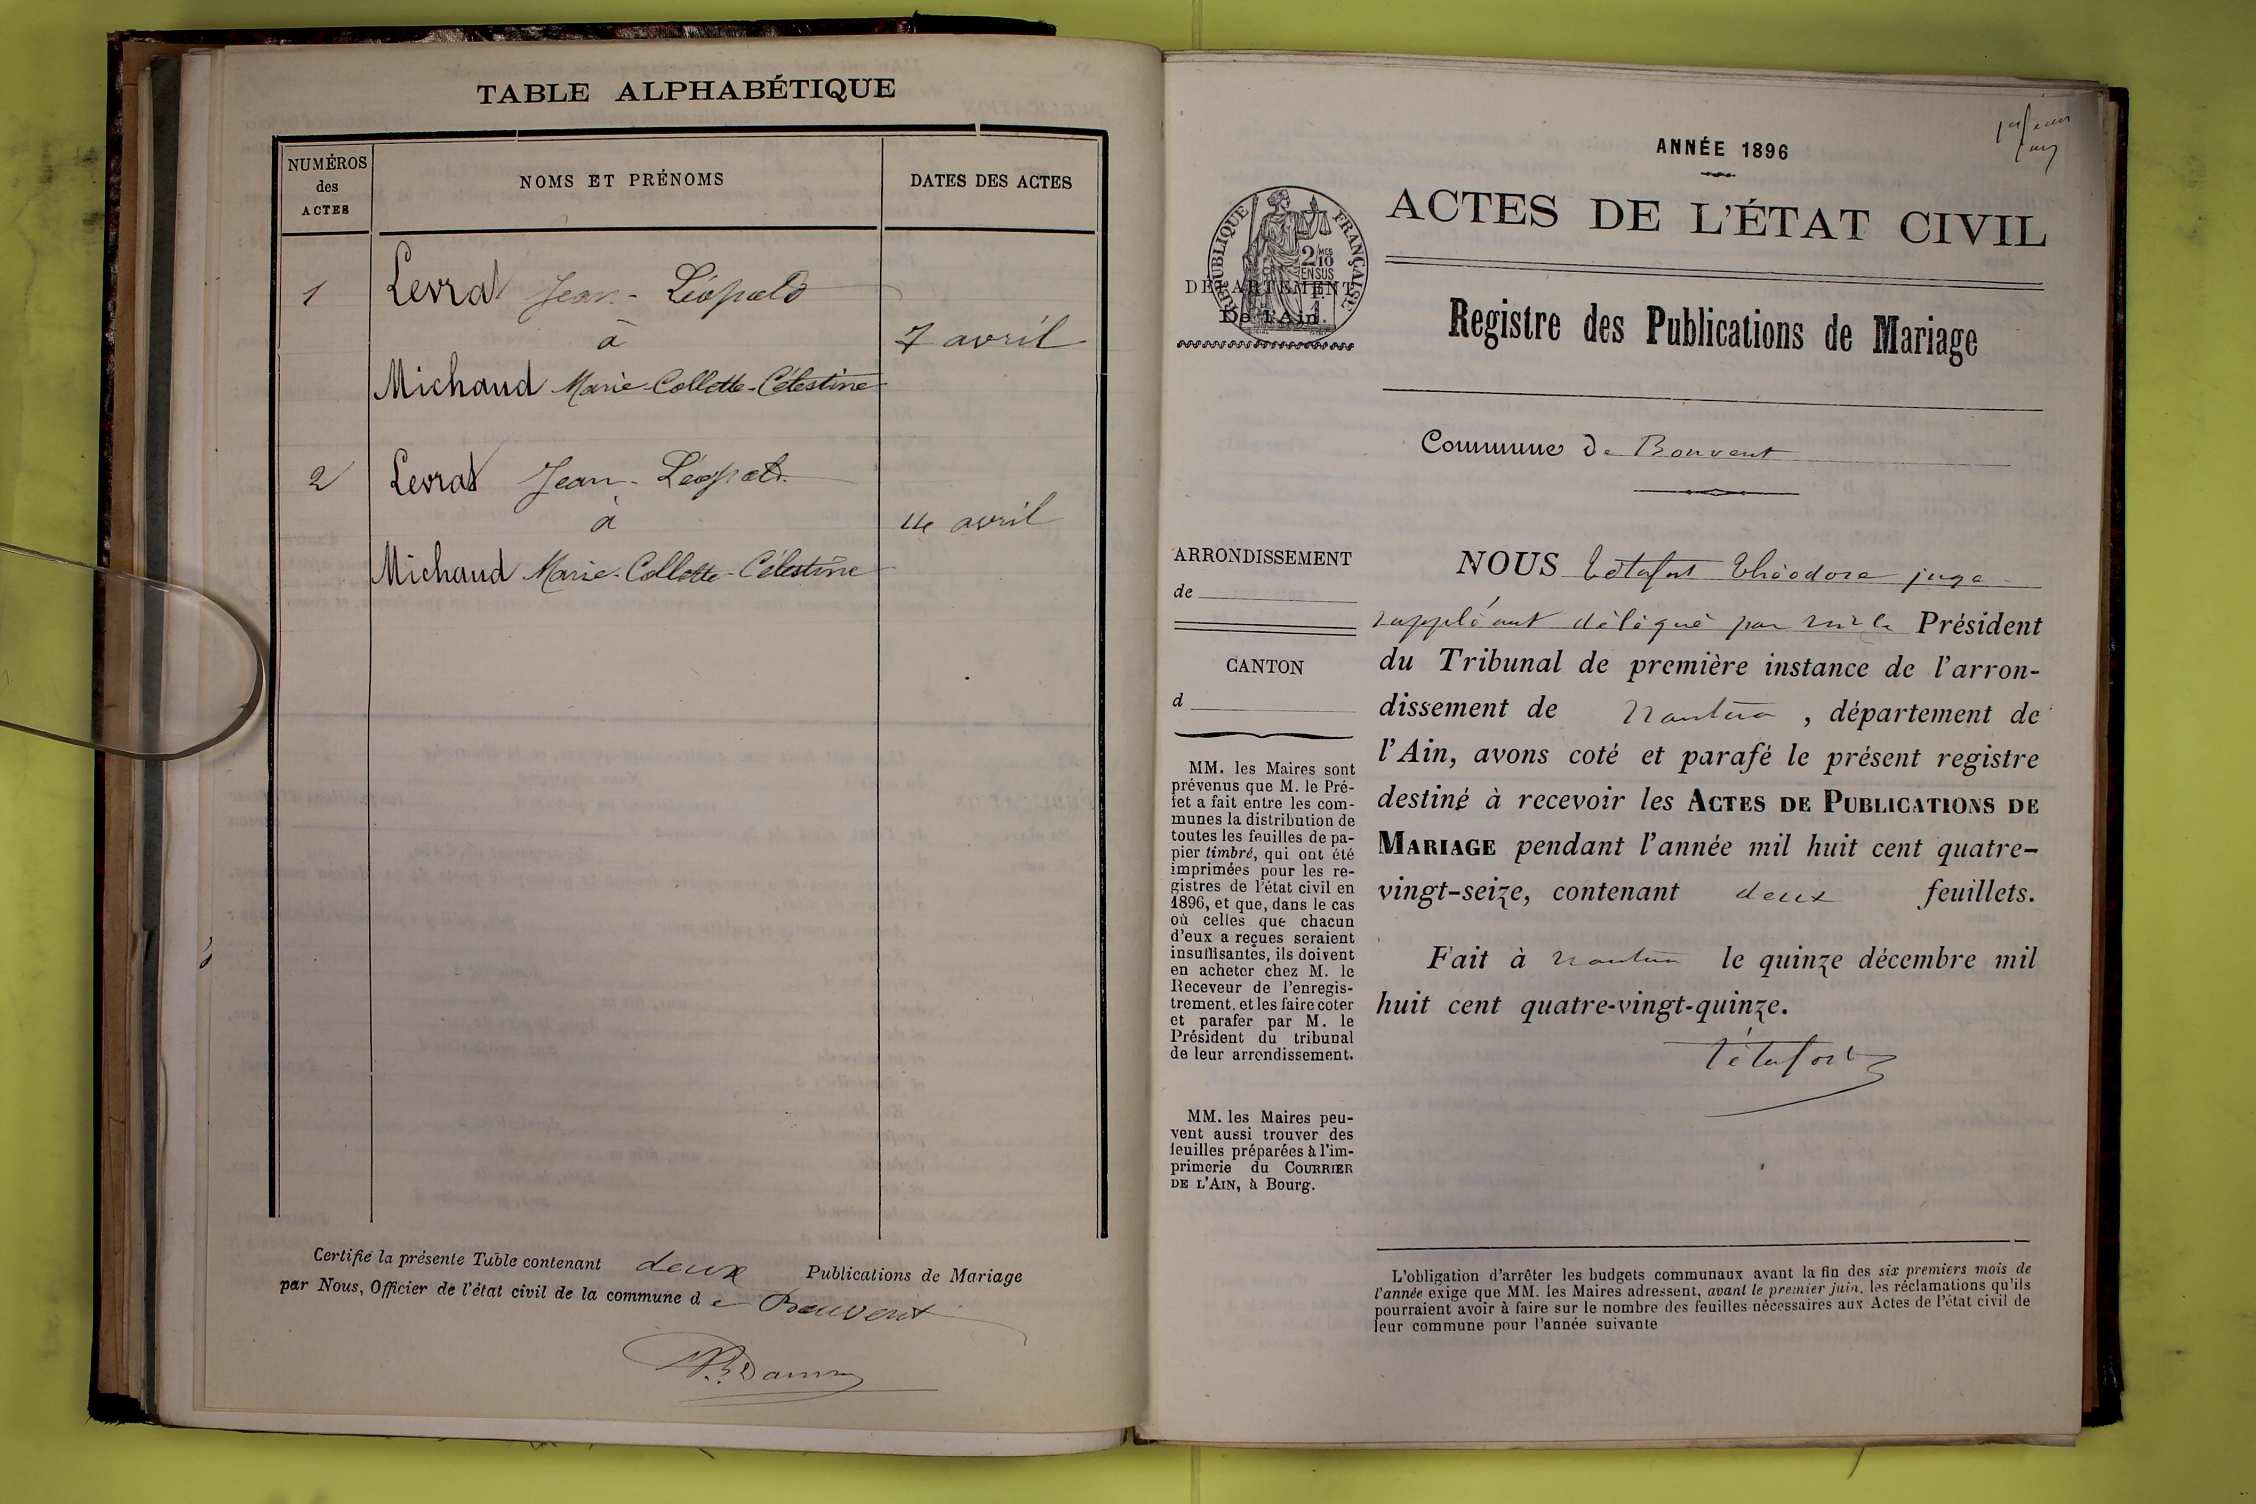 TABLE ALPHABÉTIQUE
NUMÉROS
des
ACTES
NOMS ET PRÉNOMS
DATES DES ACTES
1
Levrat Jean-Léopold
à
7 avril
Michaud Marie-Collette-Célestine
2
Levrat Jean-Léopold
à
14 avril
Michaud Marie-Collette-Célestine
Certifié la présente Table contenant deux Publications de Mariage
par Nous, Officier de l'état civil de la commune de Bouvent
ANNÉE 1896
ACTES DE L'ÉTAT CIVIL
RÉPUBLIQUE FRANÇAISE
2/10
EN SUS
DÉPARTEMENT
De l'Ain.
Registre des Publications de Mariage
Commune de Bouvent
ARRONDISSEMENT
de
CANTON
d
MM. les Maires sont
prévenus que M. le Pré-
fet a fait entre les com-
munes la distribution de
toutes les feuilles de pa-
pier timbré, qui ont été
imprimées pour les re-
gistres de l'état civil en
1896, et que, dans le cas
où celles que chacun
d'eux a reçues seraient
insuffisantes, ils doivent
en acheter chez M. le
Receveur de l'enregis-
trement, et les faire coter
et parafer par M. le
Président du tribunal
de leur arrondissement.
MM. les Maires peu-
vent aussi trouver des
feuilles préparées à l'im-
primerie du COURRIER
DE L'AIN, à Bourg.
NOUS Tétafort Théodore juge
suppléant délégué par Mr le Président
du Tribunal de première instance de l'arron-
dissement de Nantua, département de
l'Ain, avons coté et parafé le présent registre
destiné à recevoir les ACTES DE PUBLICATIONS DE
MARIAGE pendant l'année mil huit cent quatre-
vingt-seize, contenant deux feuillets.
Fait à Nantua le quinze décembre mil
huit cent quatre-vingt-quinze.
Tétafort
L'obligation d'arrêter les budgets communaux avant la fin des six premiers mois de
l'année exige que MM. les Maires adressent, avant le premier juin, les réclamations qu'ils
pourraient avoir à faire sur le nombre des feuilles nécessaires aux Actes de l'état civil de
leur commune pour l'année suivante